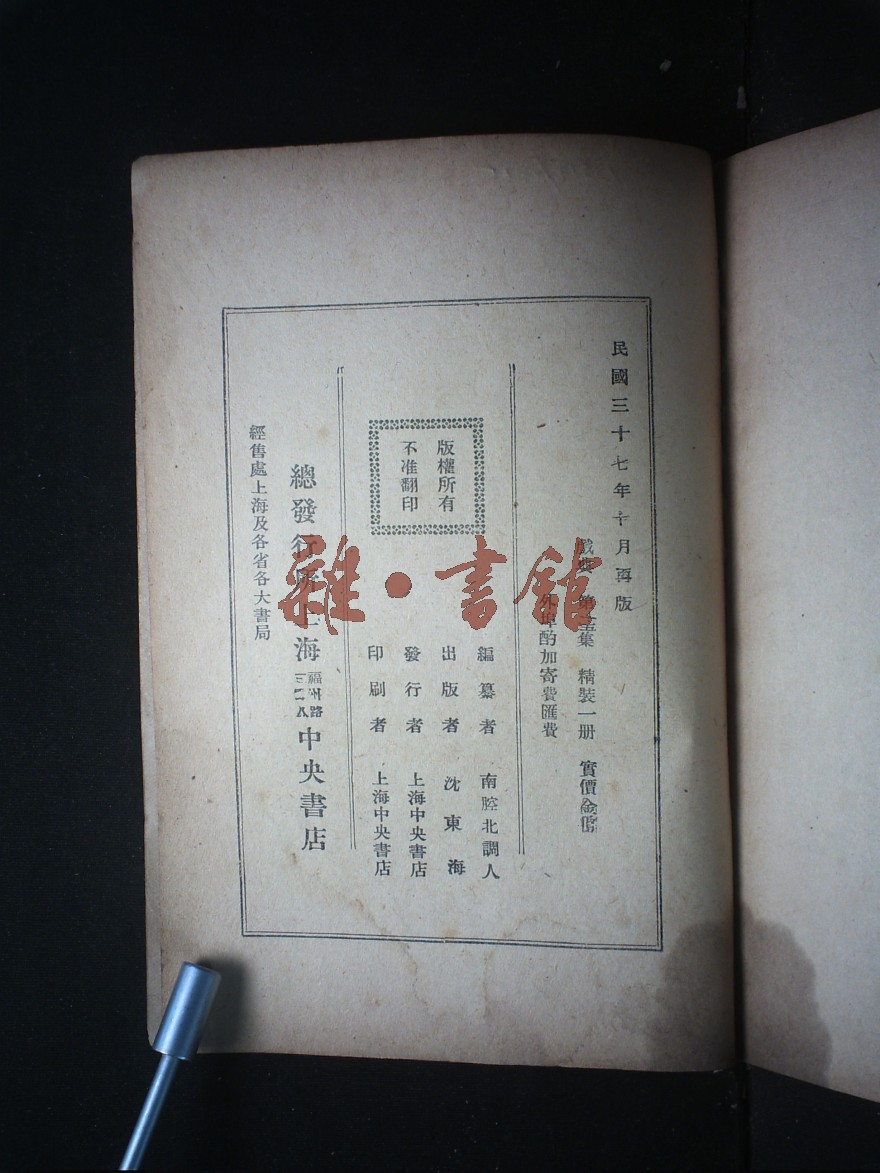 民國三十七年十月再版
戲典 第 集 精裝一册 實價
外埠酌加寄費匯費
編纂者 南腔北調人
出版者 沈東海
發行者 上海中央書店
印刷者 上海中央書店
版權所有
不准翻印
總發行所上海 福州路 中央書店
經售處上海及各省各大書局
雜·書館